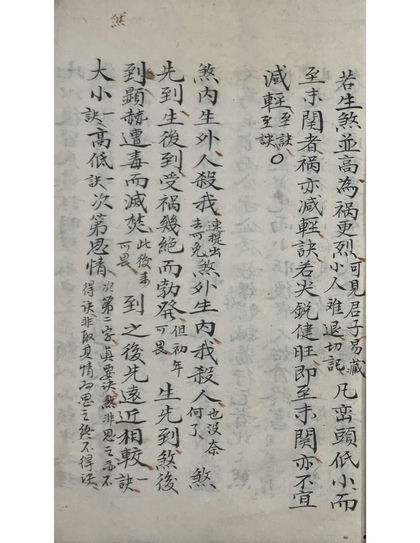 煞
若生煞並高為禍更烈可見君子易藏小人難退切記凡巒頭低小而
至未関者禍亦減輕訣若尖銳健旺即至未関亦不宜
減輕至訣至訣○
煞內生外人殺我速搬出去可免煞外生內我殺人也没奈何了煞
先到生後到受禍幾絕而勃發但初年可畏生先到煞後
到顯赫遭毒而滅焚此後來可畏到之後先遠近相較一訣
大小訣高低一訣次第思情次第二字真要訣煞非思之而不得訣非取真情而思之終不得訣